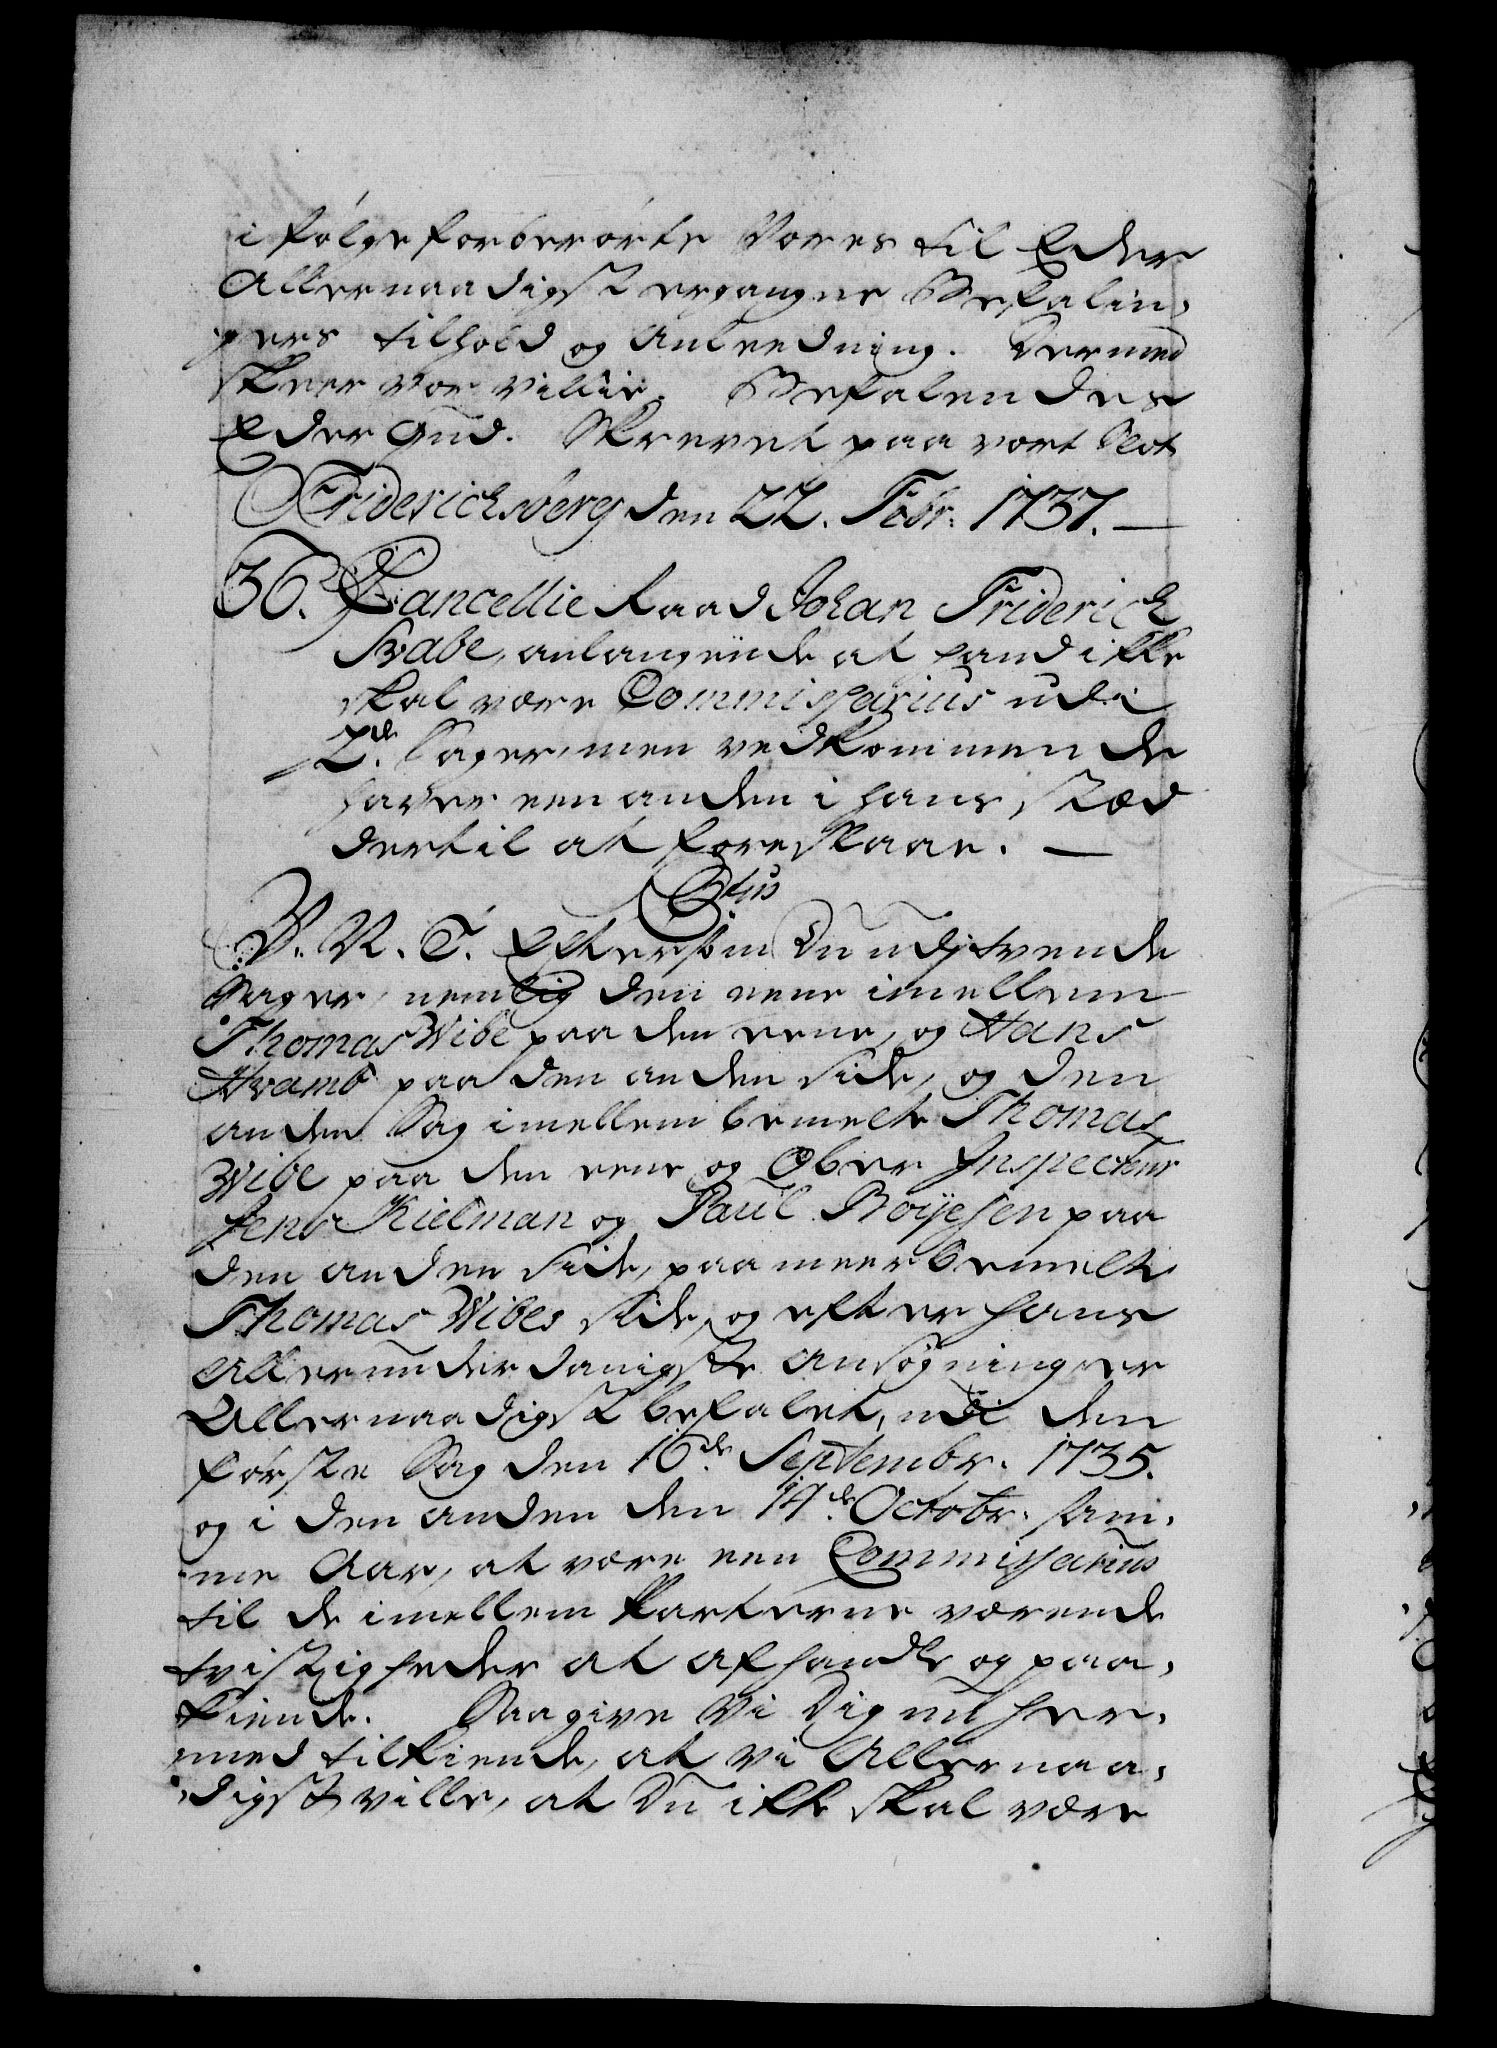 i følge forberørte Vores til Eder
Allernaadigst ergangne Befalin,
gers tilhold og Anleedning. Dermed
skeer vor Villie. Befalendes
Eder Gud. Skrevet paa vort Slot
Friderichsberg den 22. Febr: 1737. —
36. Cancellie Raad Johan Friderich
Svabe, anlangende at hand ikke
skal være Commissarius udi
2de Sager, men vedkommende
haver een anden i hans stæd
dertil at foreslaae. —
C: 6tus
V. R. T. Eftersom Du udj tvende
Sager, nemlig den eene imellem
Thomas Wibe paa den eene, og Hans
Hramb paa den anden side, og den
anden Sag imellem bemelte Thomas
Wibe paa den eene og Ober Inspecteur
Jens Kielman og Paul Boÿesen paa
den anden side, paa meerbemelte
Thomas Wibes side, og efter hans
Allerunderdanigste ansøgning er
Allernaadigst befalet, udi den
første Sag den 16de Septembr. 1735.
og i den anden den 14de Octobr. sam,
me Aar, at være een Commissarius
til de imellem Parterne værende
tvistigheder at afhandle og paa,
kiende. Saa give Vi Dig nu her,
med tilkiende, at Vi Allernaa,
digst ville, at Du ikke skal være